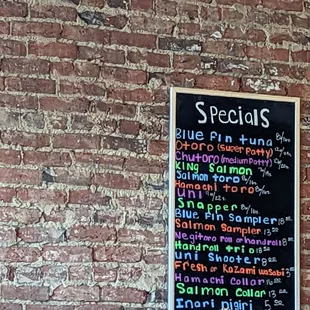 SPecialS
Blue Fin tuna
Otoro (super fatty
Chutoro (medium fatty
King Salmon
Salmon toro
Hamachi toro
Uni
Snapper
Blue Fin Sampler 18
Salmon Sampler 13
Negitoro roll or handroll 8
Handroll trio
Uni Shooter 8
Fresh or Kazami wasabi 3
Hamachi Collar
Salmon Collar 13
Inari nigiri